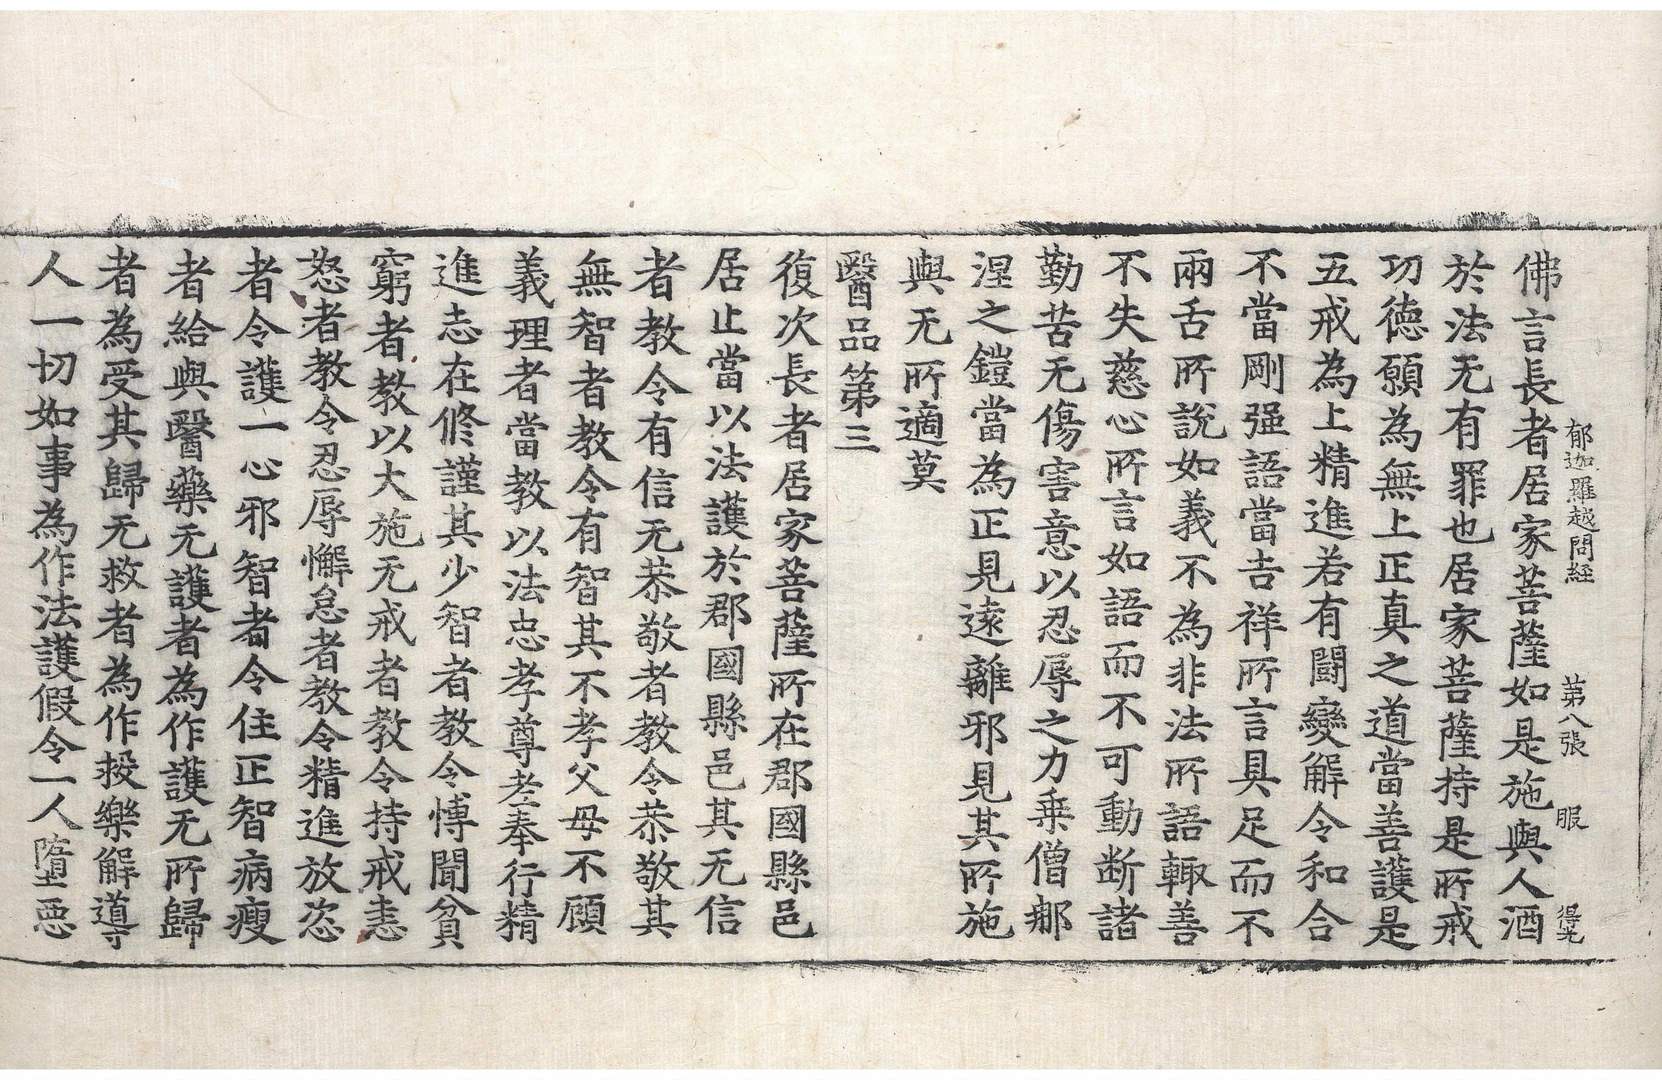 郁迦羅越問経　第八張　服　得光
佛言長者居家菩薩如是施與人酒
於法无有罪也居家菩薩持是所戒
功德願為無上正真之道當善護是
五戒為上精進若有鬪變解令和合
不當剛强語當吉祥所言具足而不
兩舌所說如義不為非法所語輙善
不失慈心所言如語而不可動断諸
勤苦无傷害意以忍辱之力乗僧那
涅之鎧當為正見遠離邪見其所施
與无所適莫
醫品第三
復次長者居家菩薩所在郡國縣邑
居止當以法護於郡國縣邑其无信
者教令有信无恭敬者教令恭敬其
無智者教令有智其不孝父母不顧
義理者當教以法忠孝尊孝奉行精
進志在修謹其少智者教令博聞貧
窮者教以大施无戒者教令持戒恚
怒者教令忍辱懈怠者教令精進放恣
者令護一心邪智者令住正智病瘦
者給與醫藥无護者為作護无所歸
者為受其歸无救者為作救樂解導
人一切如事為作法護假令一人墮惡